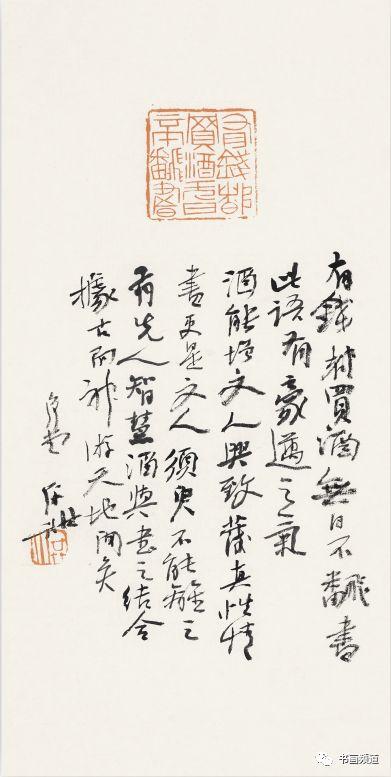 有錢都
買酒無日
不翻書
有錢都買酒無日不翻書
此語有豪邁之氣
酒能增文人興致發真性情
書更是文人須臾不能離之
有先人智慧酒與書之結合
據古而神游天地間矣
书画频道